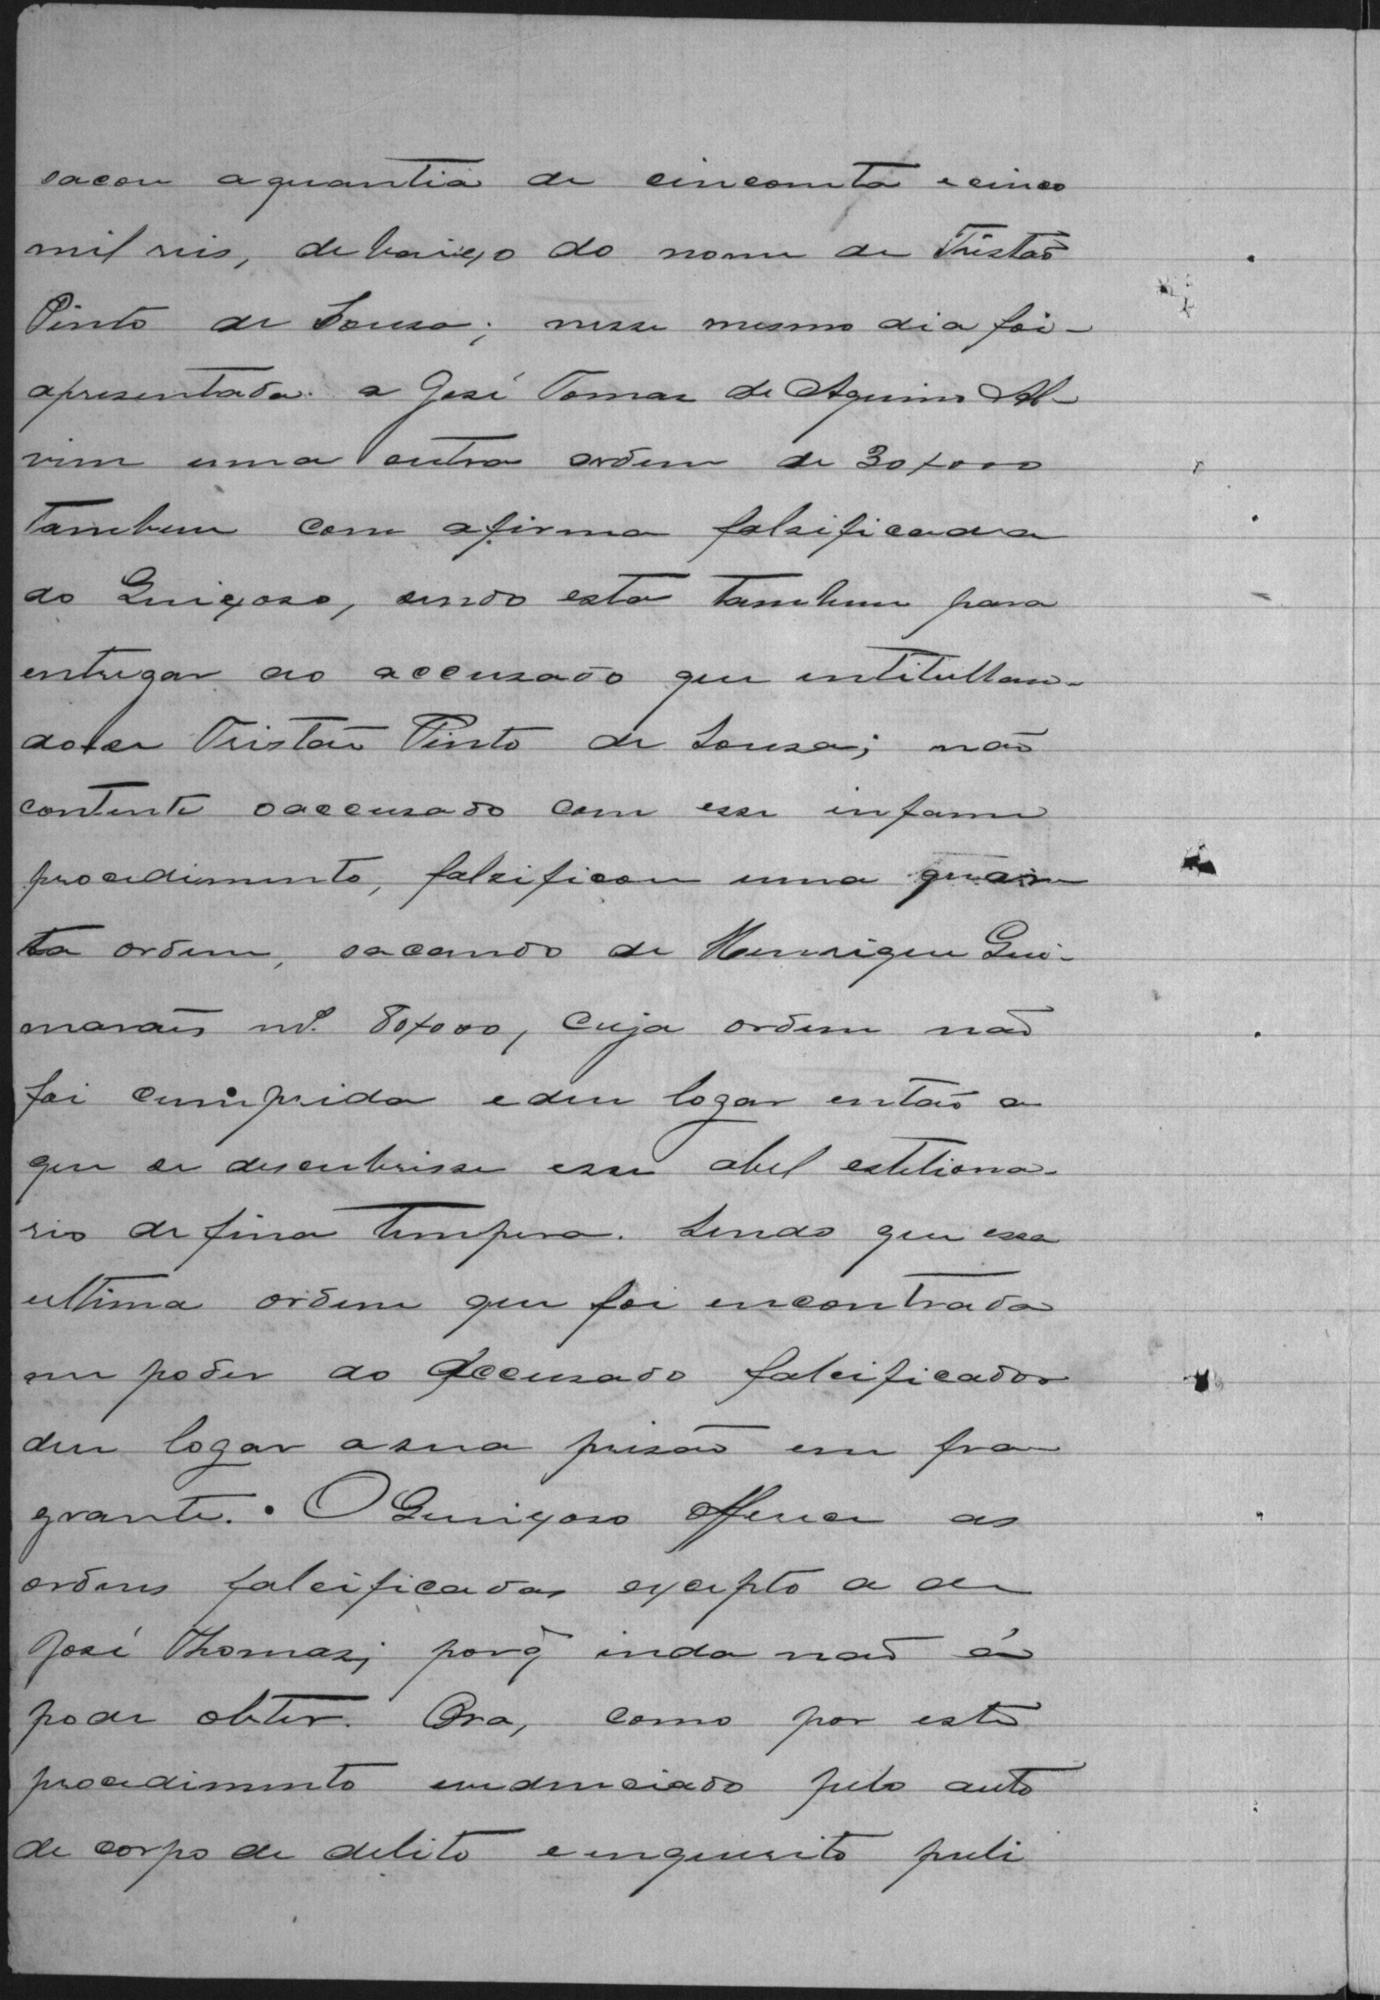 sacou a quantia de cincoenta e cinco
mil reis, debaixo do nome de Tristão
Pinto de Sousa; nesse mesmo dia foi-
apresentada a José Tomaz de Aquino Al-
vim uma outra ordem de 30$000
tambem com a firma falsificada
do Guiçoso, sendo esta tambem para
entregar ao accusado que intitullan-
dose Tristão Pinto de Sousa; não
contente o accusado com esse infame
procedimento, falsificou uma quar
ta ordem, sacando de Henrique Gui-
marães 80$000, cuja ordem não
foi cumprida e deu logar então a
que se descubrisse esse abel esteliona-
rio de fina tempera. Sendo que essa
ultima ordem que foi encontrada
em poder do accusado falcificador
deu logar a sua prisão em fra
grante. O Guiçoso offerece as
ordens falcificadas excepto a de
José Thomaz; porq̃ inda não á
pode obter. Ora, como por este
procedimento evidenciado pelo auto
de corpo de delito e inquerito puli